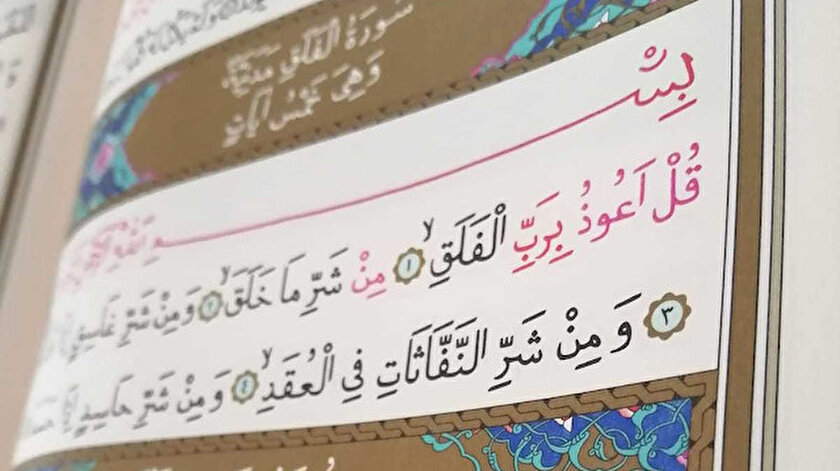 سُورَةُ الْفَلَقِ مَدَنِيَّةٌ
وَهِيَ خَمْسُ اٰيَاتٍ
بِسْــــمِ اللّٰهِ
قُلْ اَعُوذُ بِرَبِّ الْفَلَقِۙ ﴿١﴾ مِنْ شَرِّ مَا خَلَقَۙ ﴿٢﴾ وَمِنْ شَرِّ غَاسِقٍ
﴿٣﴾ وَمِنْ شَرِّ النَّفَّاثَاتِ فِي الْعُقَدِۙ ﴿٤﴾ وَمِنْ شَرِّ حَاسِدٍ